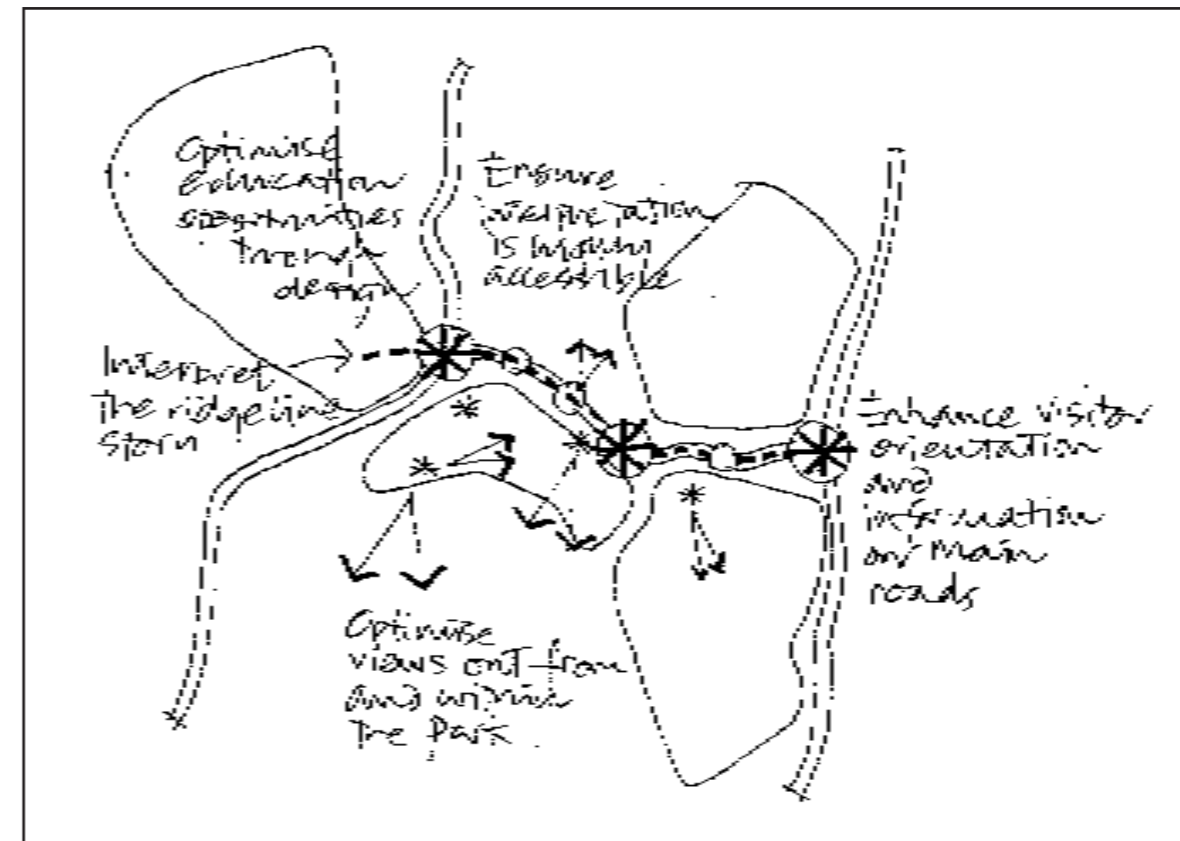 Optimise
education
opportunities
through
design
Ensure
interpretation
is
accessible
Interpret
the ridgeline
story
Enhance visitor
orientation
and
information
on main
roads
Optimise
views out from
and within
the Park.